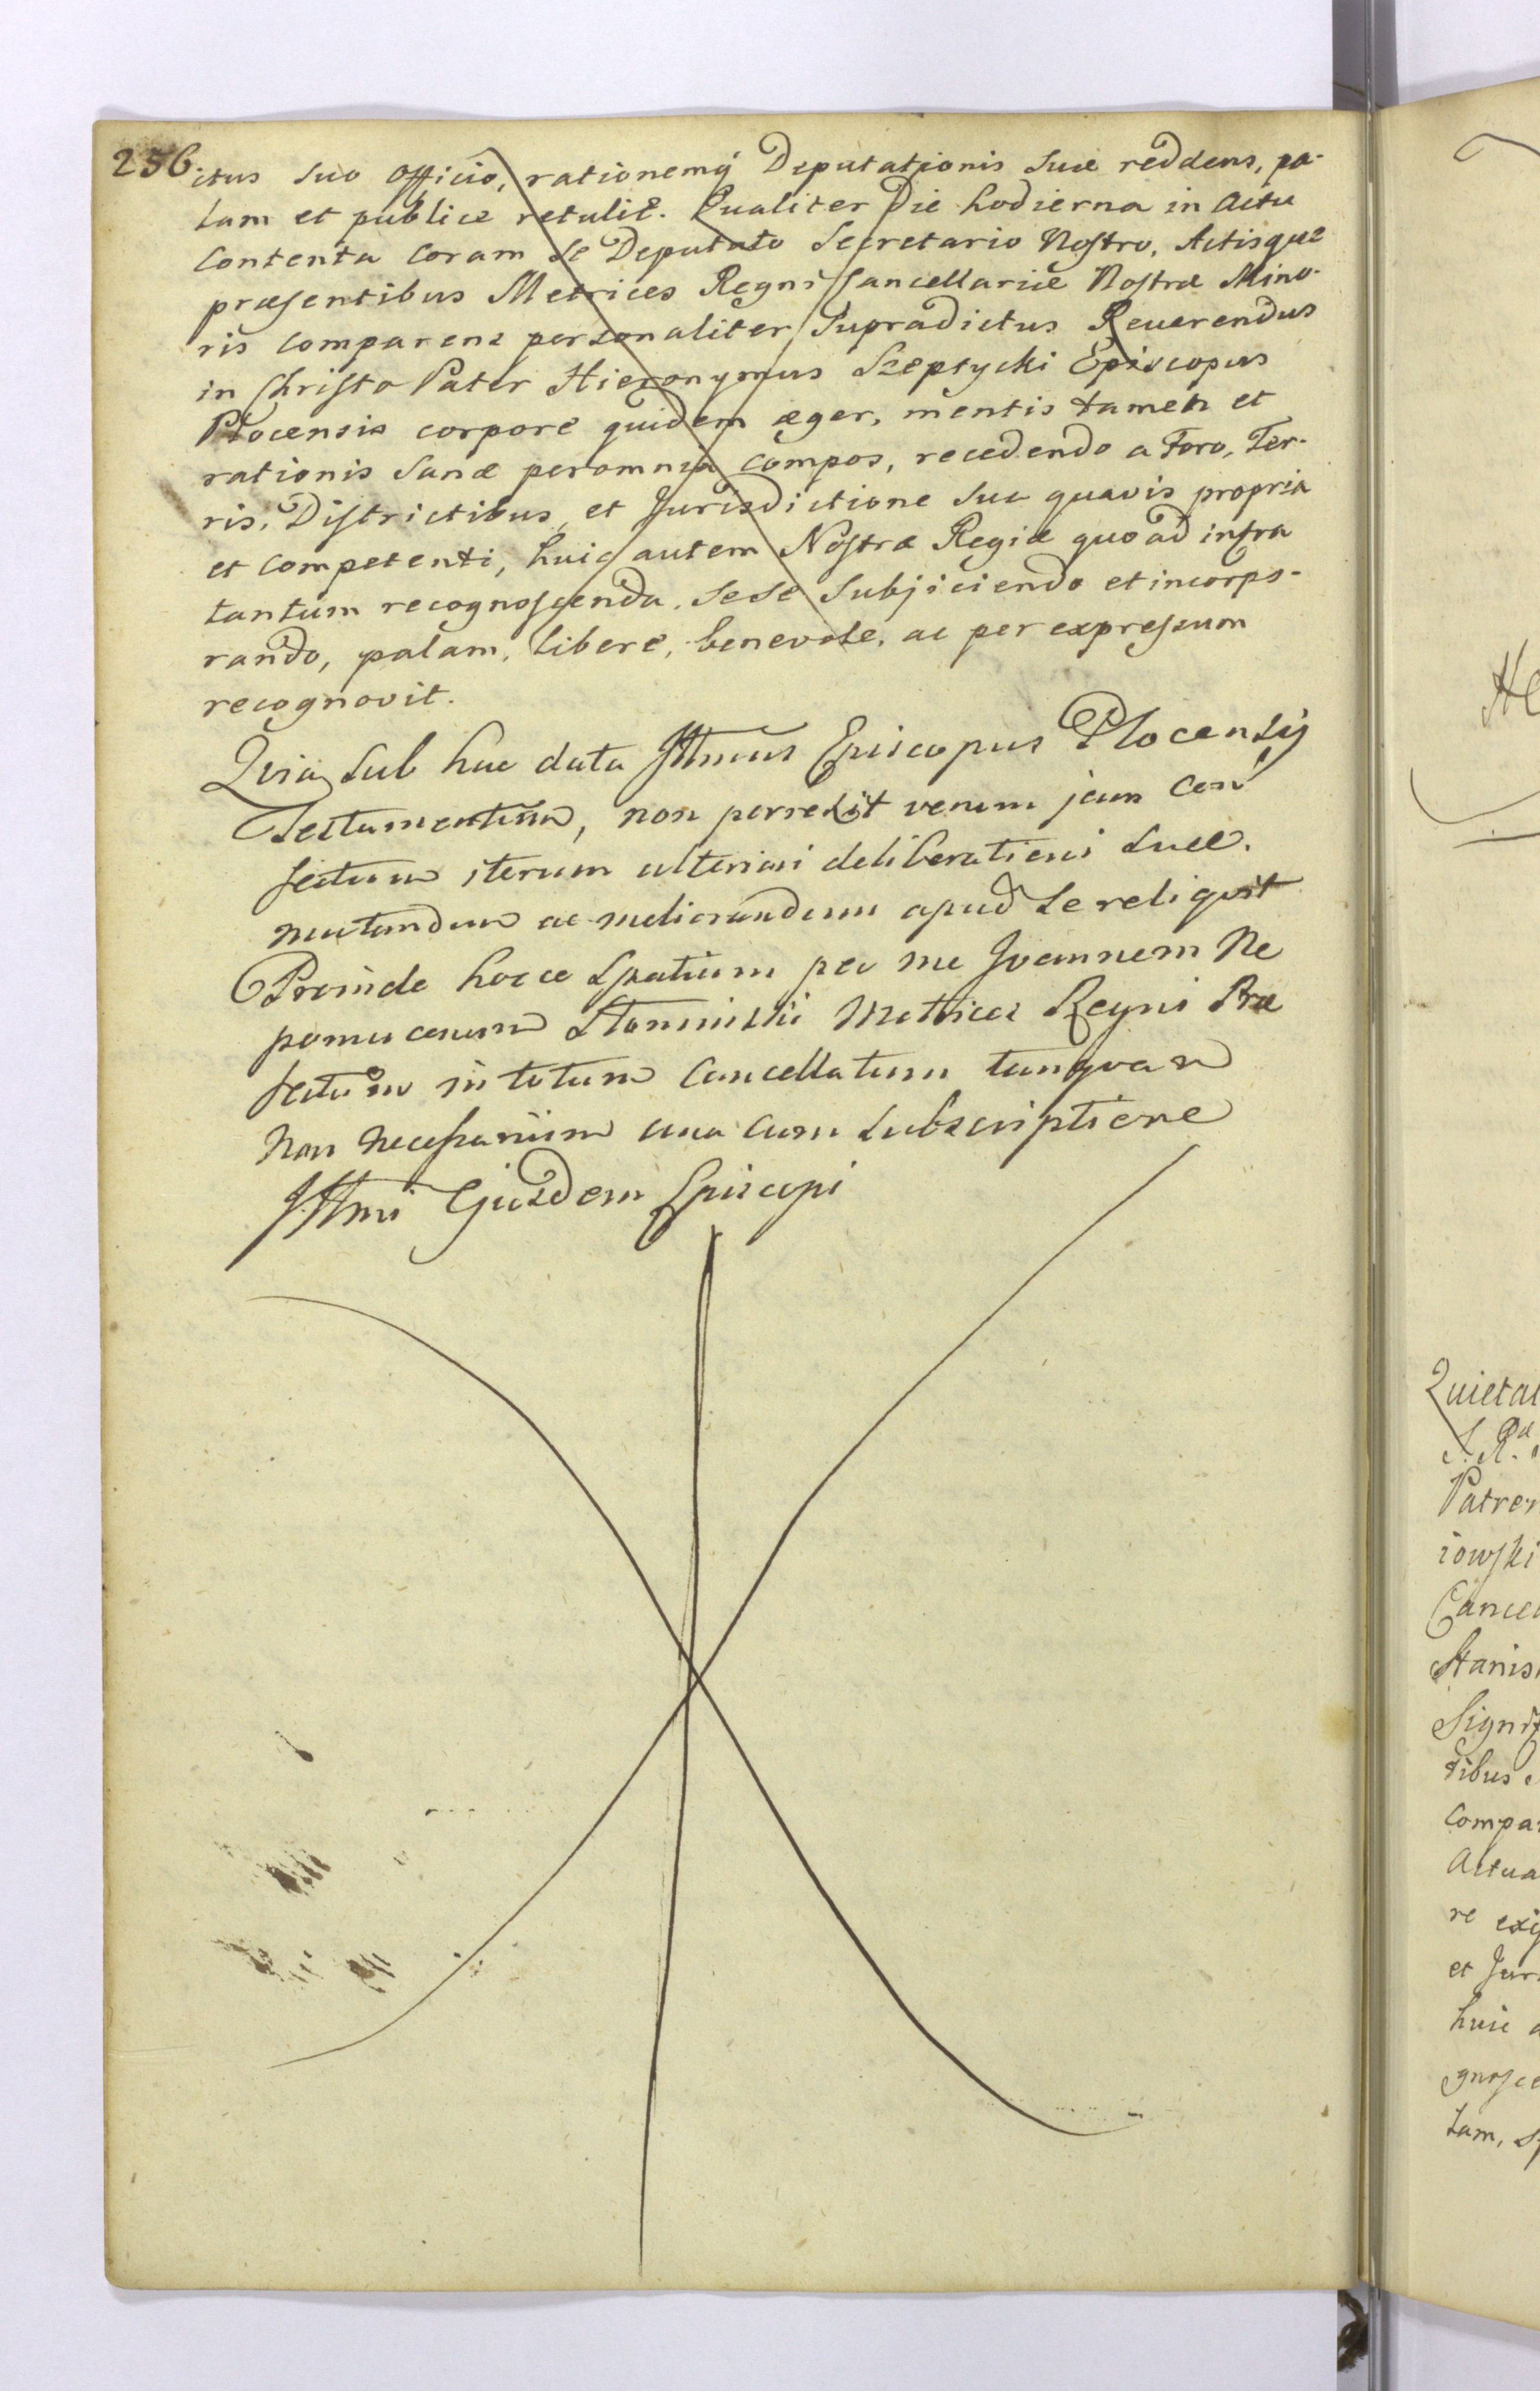 256.
ctus suo officio, rationemq̃ Deputationis suæ reddens, pa-
lam et publice retulit. Qualiter Die hodierna in Actu
Contenta Coram se Deputato Secretario Nostro, Actisque
præsentibus Metrices Regni Cancellariæ Nostræ Mino-
ris comparens personaliter Supradictus Reuerendus
in Christo Pater Hieronymus Szeptycki Episcopus
Plocensis corpore quidem æger, mentis tamen et
rationis sanæ peromnia compos, recedendo a Foro, Ter-
ris, Districtibus, et Jurisdictione sua quavis propria
et competenti, huic autem Nostræ Regiæ quoad infra
tantum recognoscenda, sese subjiciendo et incorpo-
rando, palam, libere, benevole, ac per expressum
recognovit.
Quia sub hac data Illmus Episcopus Plocensis
Testamentum, non porrexit verum jam con
fectum iterum ulteriori deliberationi suæ
mutandum ac meliorandum apud se reliquit
Proinde hocce spatium per me Joannem Ne
pomucenum Słomiński Metrices Regni Præ
fectum in totum Cancellatum tanquam
non necessarium una cum subscriptione
Illmi Ejusdem Episcopi
Quietat
Patre
iowski
Cance
Stanis
Signi
tibus
Compa
Actua
re exi
et Jur
huic a
gnosce
tam, s